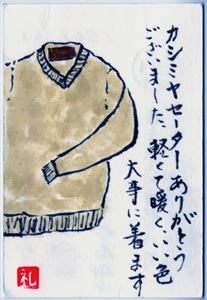 カシミヤセーターありがとう
ございました、軽くて暖く、いい色
大事に着ます
礼